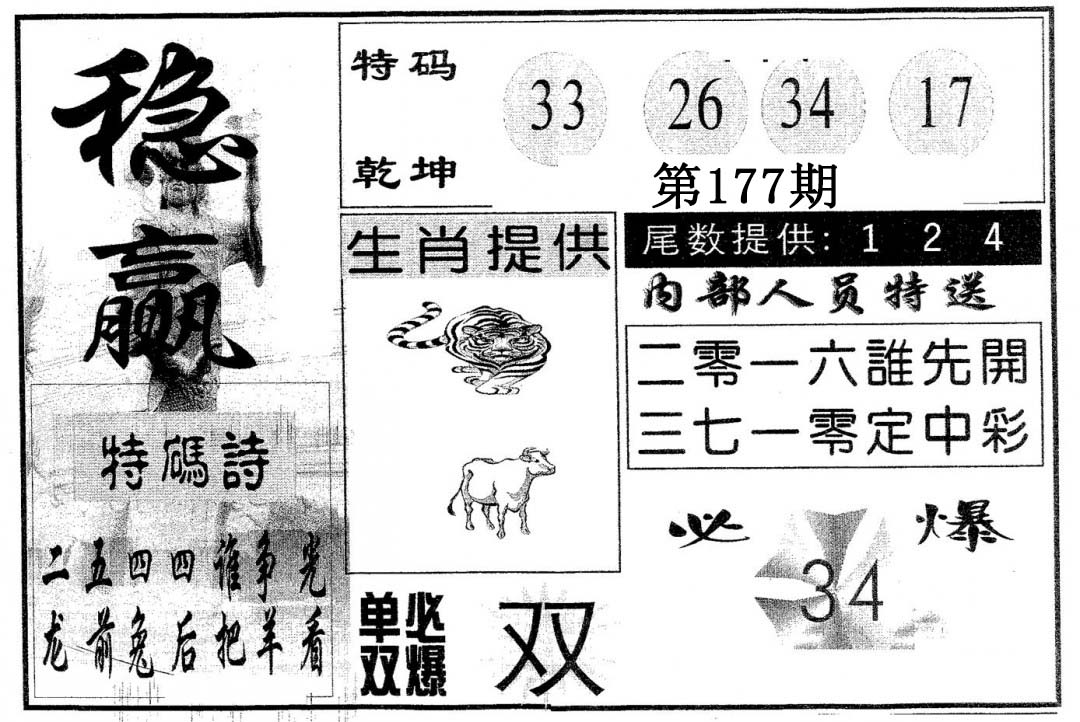 稳赢
特码
乾坤
33 26 34 17
第177期
生肖提供
尾数提供: 1 2 4
内部人员特送
二零一六誰先開
三七一零定中彩
特碼詩
二五四四谁争光
龙前兔后把羊看
必爆
34
单双
必爆
双